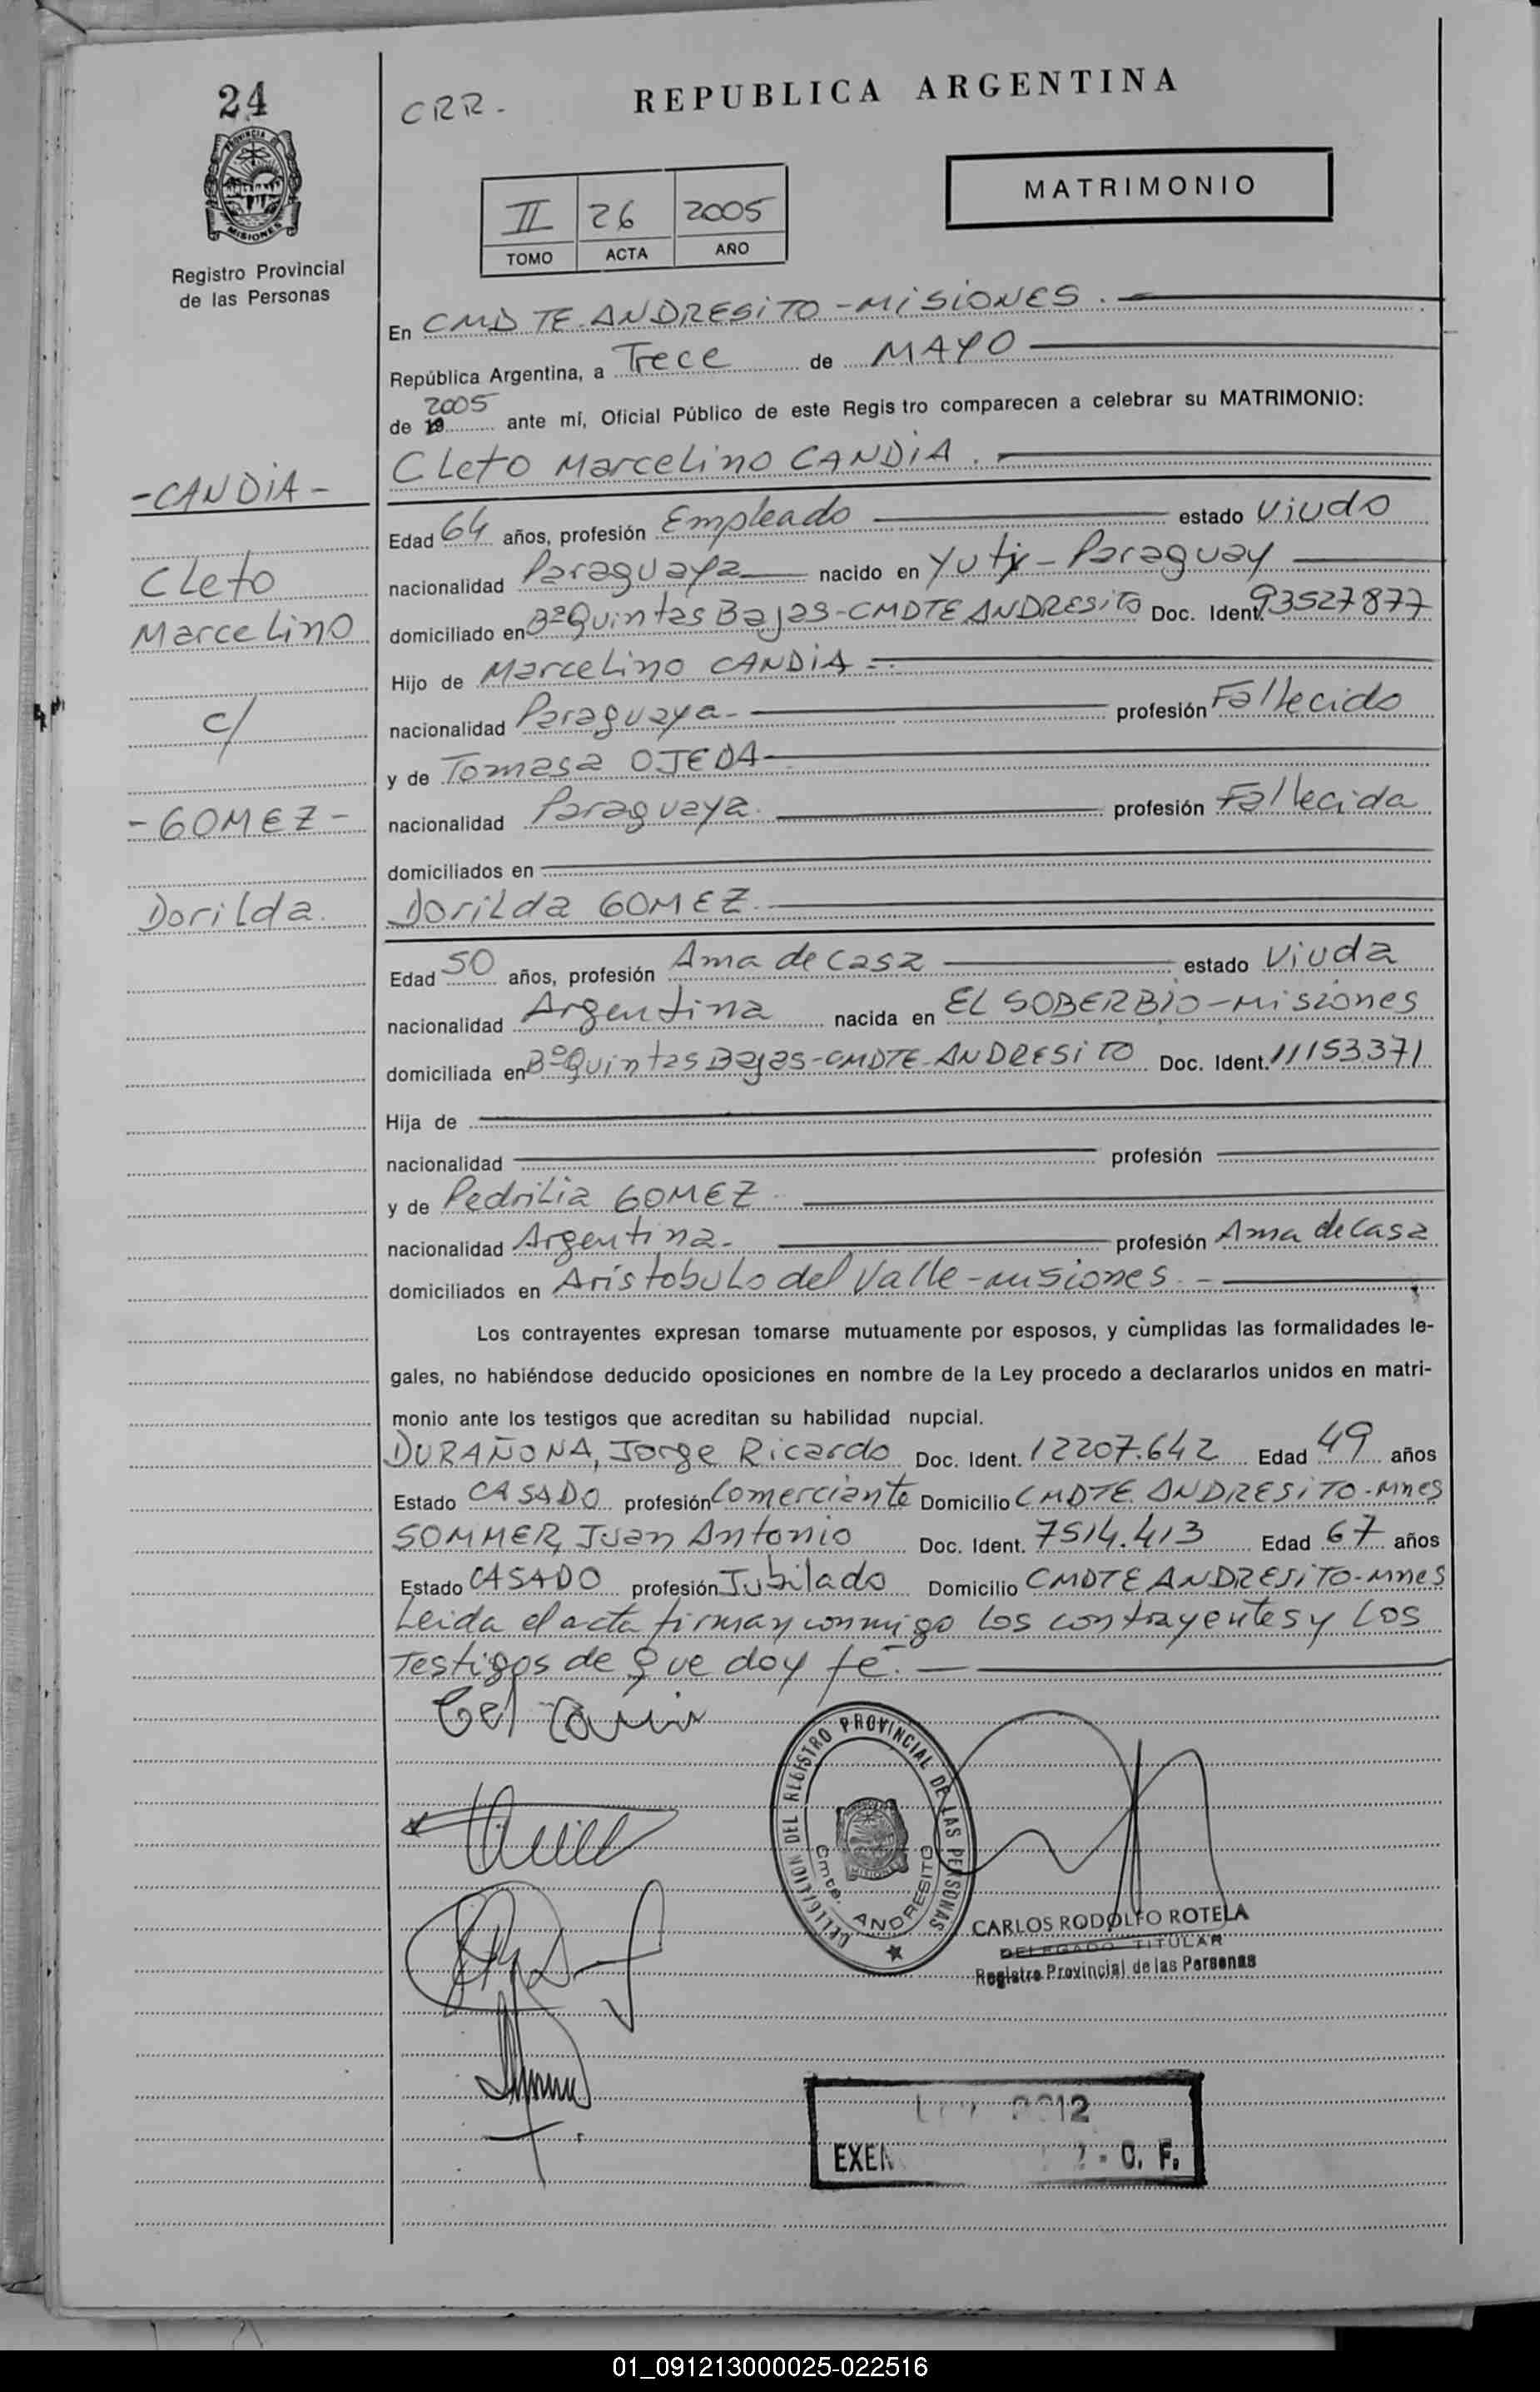 24
CRR.
REPUBLICA ARGENTINA
PROVINCIA
MISIONES
Registro Provincial
de las Personas
II 26 2005
TOMO ACTA AÑO
MATRIMONIO
En CMDTE. ANDRESITO - MISIONES.
República Argentina, a Trece de MAYO
2005
de 19 ante mí, Oficial Público de este Regis tro comparecen a celebrar su MATRIMONIO:
Cleto Marcelino CANDIA.
-CANDIA-
Edad 64 años, profesión Empleado estado Viudo
Cleto
nacionalidad Paraguaya nacido en Yuty - Paraguay
Marcelino
domiciliado en Bº Quintas Bajas-CMDTE ANDRESITO Doc. Ident. 93527877
Hijo de Marcelino CANDIA
c/
nacionalidad Paraguaya- profesión Fallecido
y de Tomasa OJEDA
-GOMEZ-
nacionalidad Paraguaya. profesión Fallecida
domiciliados en
Dorilda.
Dorilda GOMEZ.
Edad 50 años, profesión Ama de casa estado Viuda
nacionalidad Argentina nacida en EL SOBERBIO-Misiones
domiciliada en Bº Quintas Bajas-CMDTE-ANDRESITO Doc. Ident. 11153371
Hija de
nacionalidad profesión
y de Pedrilia GOMEZ
nacionalidad Argentina. profesión Ama de casa
domiciliados en Aristobulo del Valle-misiones.
Los contrayentes expresan tomarse mutuamente por esposos, y cumplidas las formalidades le-
gales, no habiéndose deducido oposiciones en nombre de la Ley procedo a declararlos unidos en matri-
monio ante los testigos que acreditan su habilidad nupcial.
DURAÑONA, Jorge Ricardo Doc. Ident. 12207.642 Edad 49 años
Estado CASADO profesión Comerciante Domicilio CMDTE. ANDRESITO-Mnes
SOMMER, Juan Antonio Doc. Ident. 7514.413 Edad 67 años
Estado CASADO profesión Jubilado Domicilio CMDTE ANDRESITO-Mnes
Leida el acta firman conmigo los contrayentes y los
Testigos de que doy fé.
DELEGACION DEL REGISTRO PROVINCIAL DE LAS PERSONAS
Cmte. ANDRESITO
MISIONES
CARLOS RODOLFO ROTELA
DELEGADO TITULAR
Registro Provincial de las Personas
12
C. F.
01_091213000025-022516